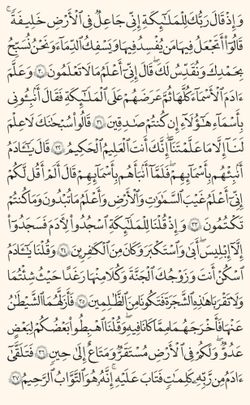 وَإِذْ قَالَ رَبُّكَ لِلْمَلَٰٓئِكَةِ إِنِّى جَاعِلٌ فِى ٱلْأَرْضِ خَلِيفَةً ۖ
قَالُوٓا۟ أَتَجْعَلُ فِيهَا مَن يُفْسِدُ فِيهَا وَيَسْفِكُ ٱلدِّمَآءَ وَنَحْنُ نُسَبِّحُ
بِحَمْدِكَ وَنُقَدِّسُ لَكَ ۖ قَالَ إِنِّىٓ أَعْلَمُ مَا لَا تَعْلَمُونَ ٣٠ وَعَلَّمَ
ءَادَمَ ٱلْأَسْمَآءَ كُلَّهَا ثُمَّ عَرَضَهُمْ عَلَى ٱلْمَلَٰٓئِكَةِ فَقَالَ أَنۢبِـُٔونِى
بِأَسْمَآءِ هَٰٓؤُلَآءِ إِن كُنتُمْ صَٰدِقِينَ ٣١ قَالُوا۟ سُبْحَٰنَكَ لَا عِلْمَ
لَنَآ إِلَّا مَا عَلَّمْتَنَآ ۖ إِنَّكَ أَنتَ ٱلْعَلِيمُ ٱلْحَكِيمُ ٣٢ قَالَ يَٰٓـَٔادَمُ
أَنۢبِئْهُم بِأَسْمَآئِهِمْ ۖ فَلَمَّآ أَنۢبَأَهُم بِأَسْمَآئِهِمْ قَالَ أَلَمْ أَقُل لَّكُمْ
إِنِّىٓ أَعْلَمُ غَيْبَ ٱلسَّمَٰوَٰتِ وَٱلْأَرْضِ وَأَعْلَمُ مَا تُبْدُونَ وَمَا كُنتُمْ
تَكْتُمُونَ ٣٣ وَإِذْ قُلْنَا لِلْمَلَٰٓئِكَةِ ٱسْجُدُوا۟ لِءَادَمَ فَسَجَدُوٓا۟
إِلَّآ إِبْلِيسَ أَبَىٰ وَٱسْتَكْبَرَ وَكَانَ مِنَ ٱلْكَٰفِرِينَ ٣٤ وَقُلْنَا يَٰٓـَٔادَمُ
ٱسْكُنْ أَنتَ وَزَوْجُكَ ٱلْجَنَّةَ وَكُلَا مِنْهَا رَغَدًا حَيْثُ شِئْتُمَا
وَلَا تَقْرَبَا هَٰذِهِ ٱلشَّجَرَةَ فَتَكُونَا مِنَ ٱلظَّٰلِمِينَ ٣٥ فَأَزَلَّهُمَا ٱلشَّيْطَٰنُ
عَنْهَا فَأَخْرَجَهُمَا مِمَّا كَانَا فِيهِ ۖ وَقُلْنَا ٱهْبِطُوا۟ بَعْضُكُمْ لِبَعْضٍ
عَدُوٌّ ۖ وَلَكُمْ فِى ٱلْأَرْضِ مُسْتَقَرٌّ وَمَتَٰعٌ إِلَىٰ حِينٍ ٣٦ فَتَلَقَّىٰٓ
ءَادَمُ مِن رَّبِّهِۦ كَلِمَٰتٍ فَتَابَ عَلَيْهِ ۚ إِنَّهُۥ هُوَ ٱلتَّوَّابُ ٱلرَّحِيمُ ٣٧